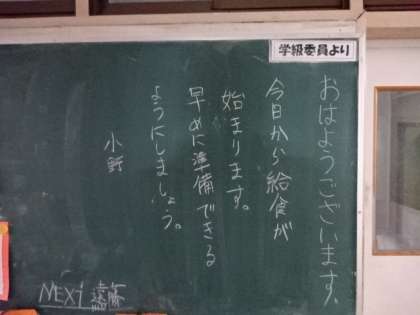 学級委員より
おはようございます。
今日から給食が
始まります。
早めに準備できる
ようにしましょう。
小野
NEXT 遠藤